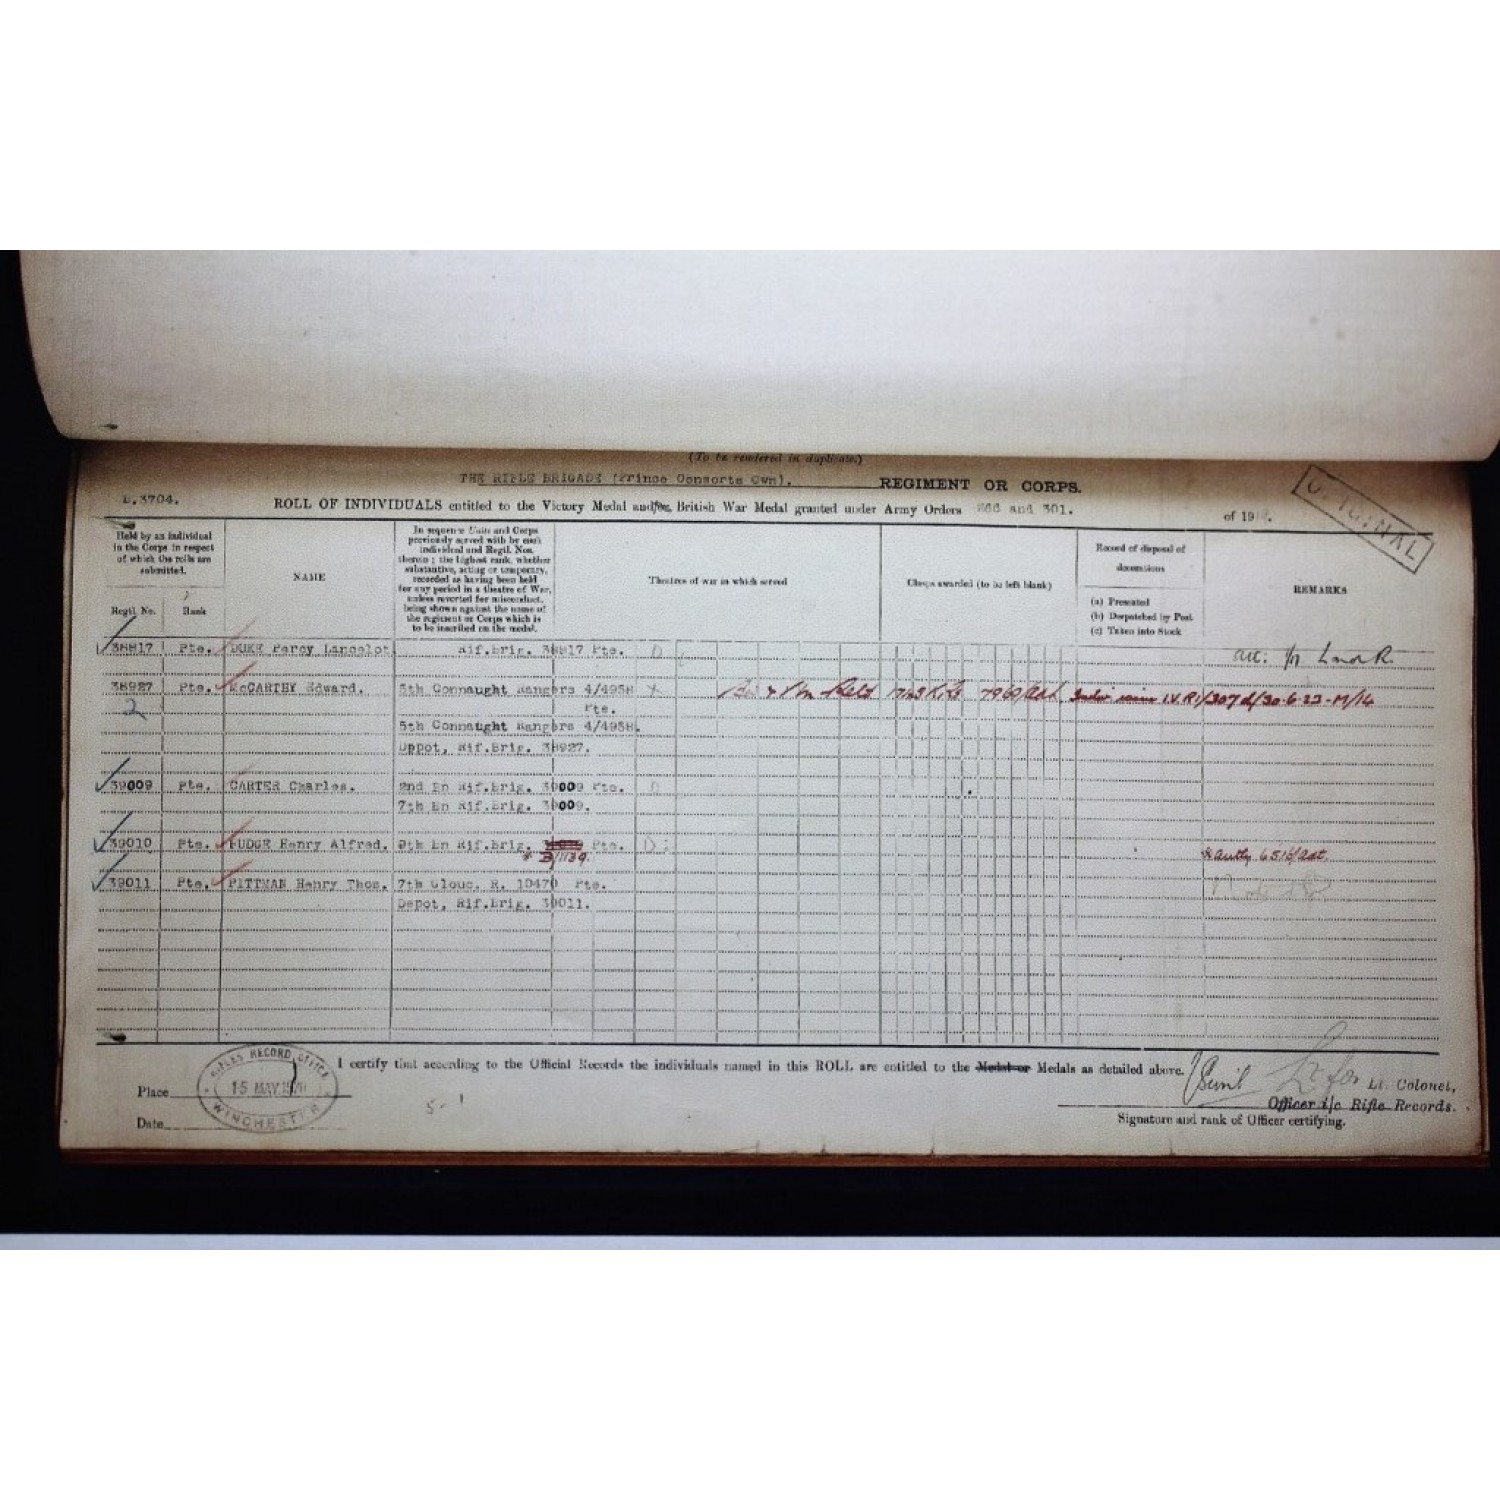 (To be rendered in duplicate.)
THE RIFLE BRIGADE (Prince Consorts Own). REGIMENT OR CORPS.
E.3704.
ROLL OF INDIVIDUALS entitled to the Victory Medal and/or British War Medal granted under Army Orders and 301. of 191
ORIGINAL
Held by an individual
in the Corps in respect
of which the rolls are
submitted.
Regtl. No. Rank
NAME
In sequence Units and Corps
previously served with by each
individual and Regtl. Nos.
therein; the highest rank, whether
substantive, acting or temporary,
recorded as having been held
for any period in a theatre of War,
unless reverted for misconduct,
being shown against the name of
the regiment or Corps which is
to be inscribed on the medal.
Theatres of war in which served
Clasps awarded (to be left blank)
Record of disposal of
decorations
(a) Presented
(b) Despatched by Post
(c) Taken into Stock
REMARKS
38817 Pte. DUKE Percy Lancelot. Rif.Brig. 38817 Pte. D
38927 Pte. McCARTHY Edward. 5th Connaught Rangers 4/4958 X
Pte.
2
5th Connaught Rangers 4/4958.
Depot, Rif.Brig. 38927.
39009 Pte. CARTER Charles. 2nd Bn Rif.Brig. 39009 Pte. D
7th Bn Rif.Brig. 39009.
39010 Pte. FUDGE Henry Alfred. 9th Bn Rif.Brig. Pte. D
39011 Pte. PITTMAN Henry Thos. 7th Glouc. R. 10470 Pte.
Depot, Rif.Brig. 39011.
I certify that according to the Official Records the individuals named in this ROLL are entitled to the Medal or Medals as detailed above.
Lt. Colonel,
Officer i/c Rifle Records.
Signature and rank of Officer certifying.
Place
RIFLES RECORD OFFICE
15 MAY 1920
WINCHESTER
Date